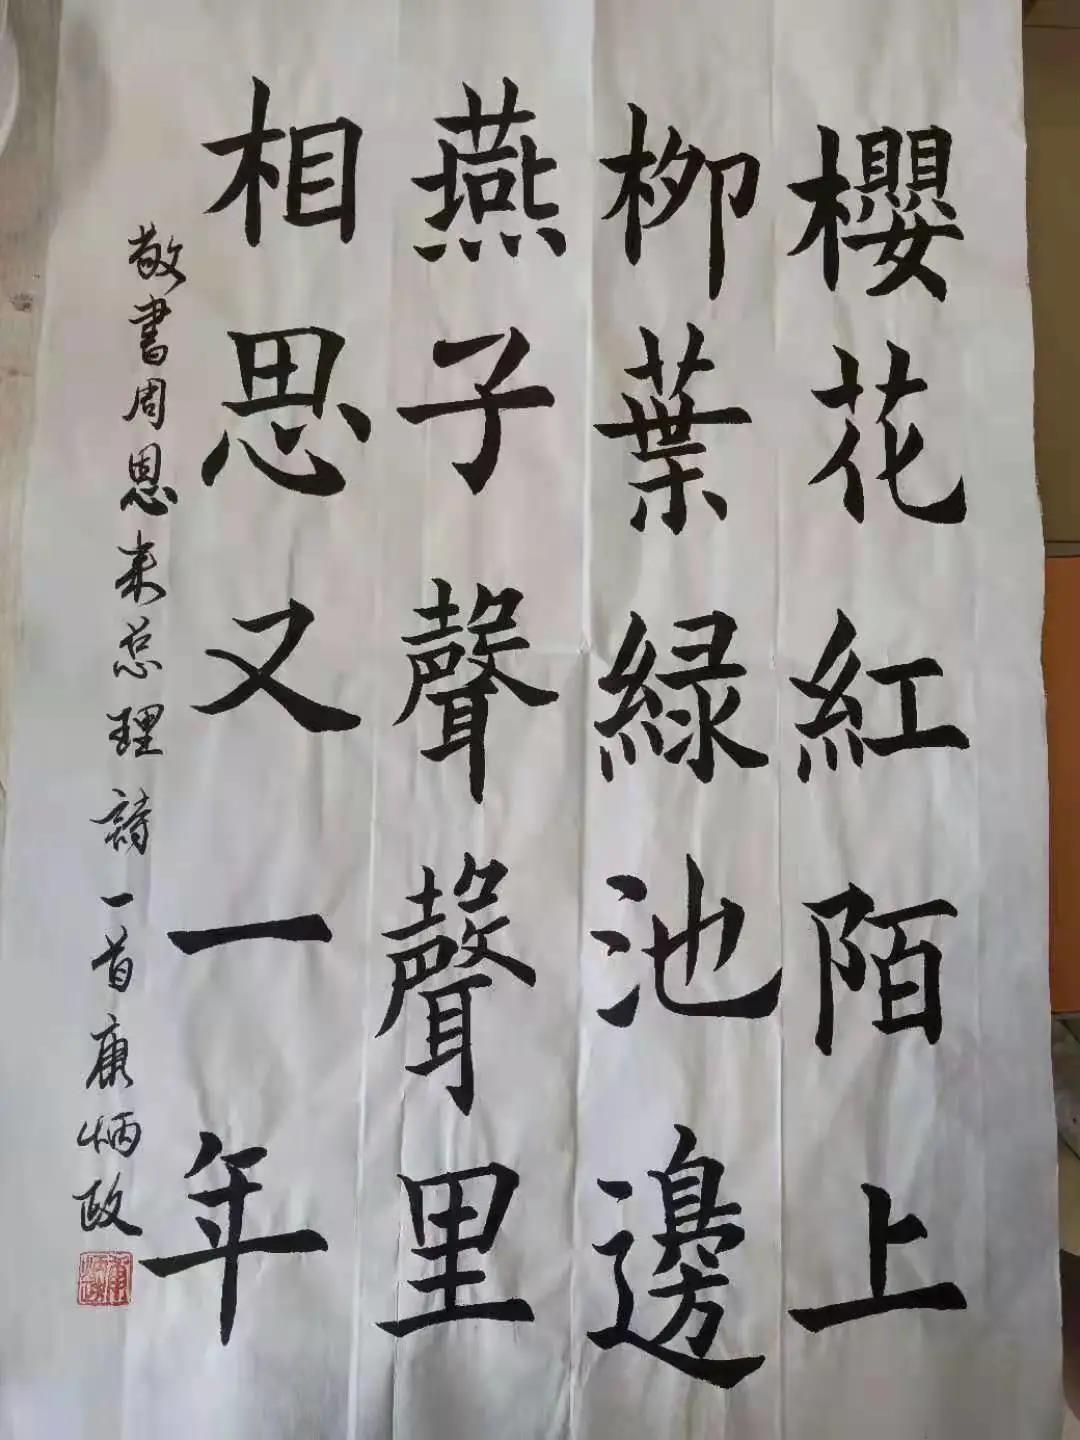 櫻花紅陌上
柳葉緑池邊
燕子聲聲里
相思又一年
敬書周恩来总理詩一首康炳政